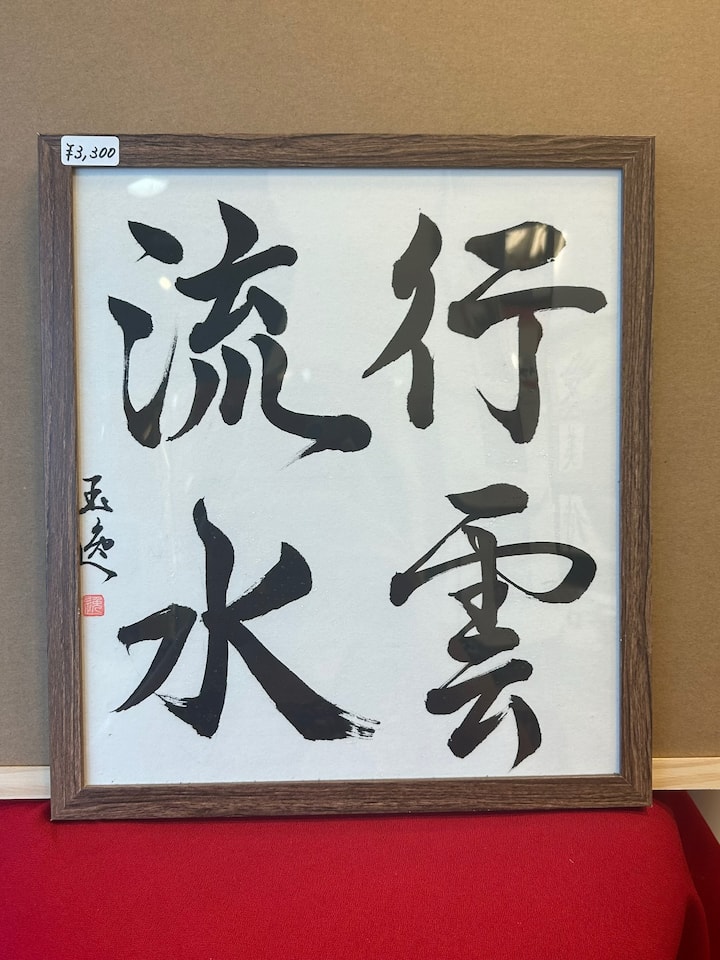 ¥3,300
行雲
流水
玉逸